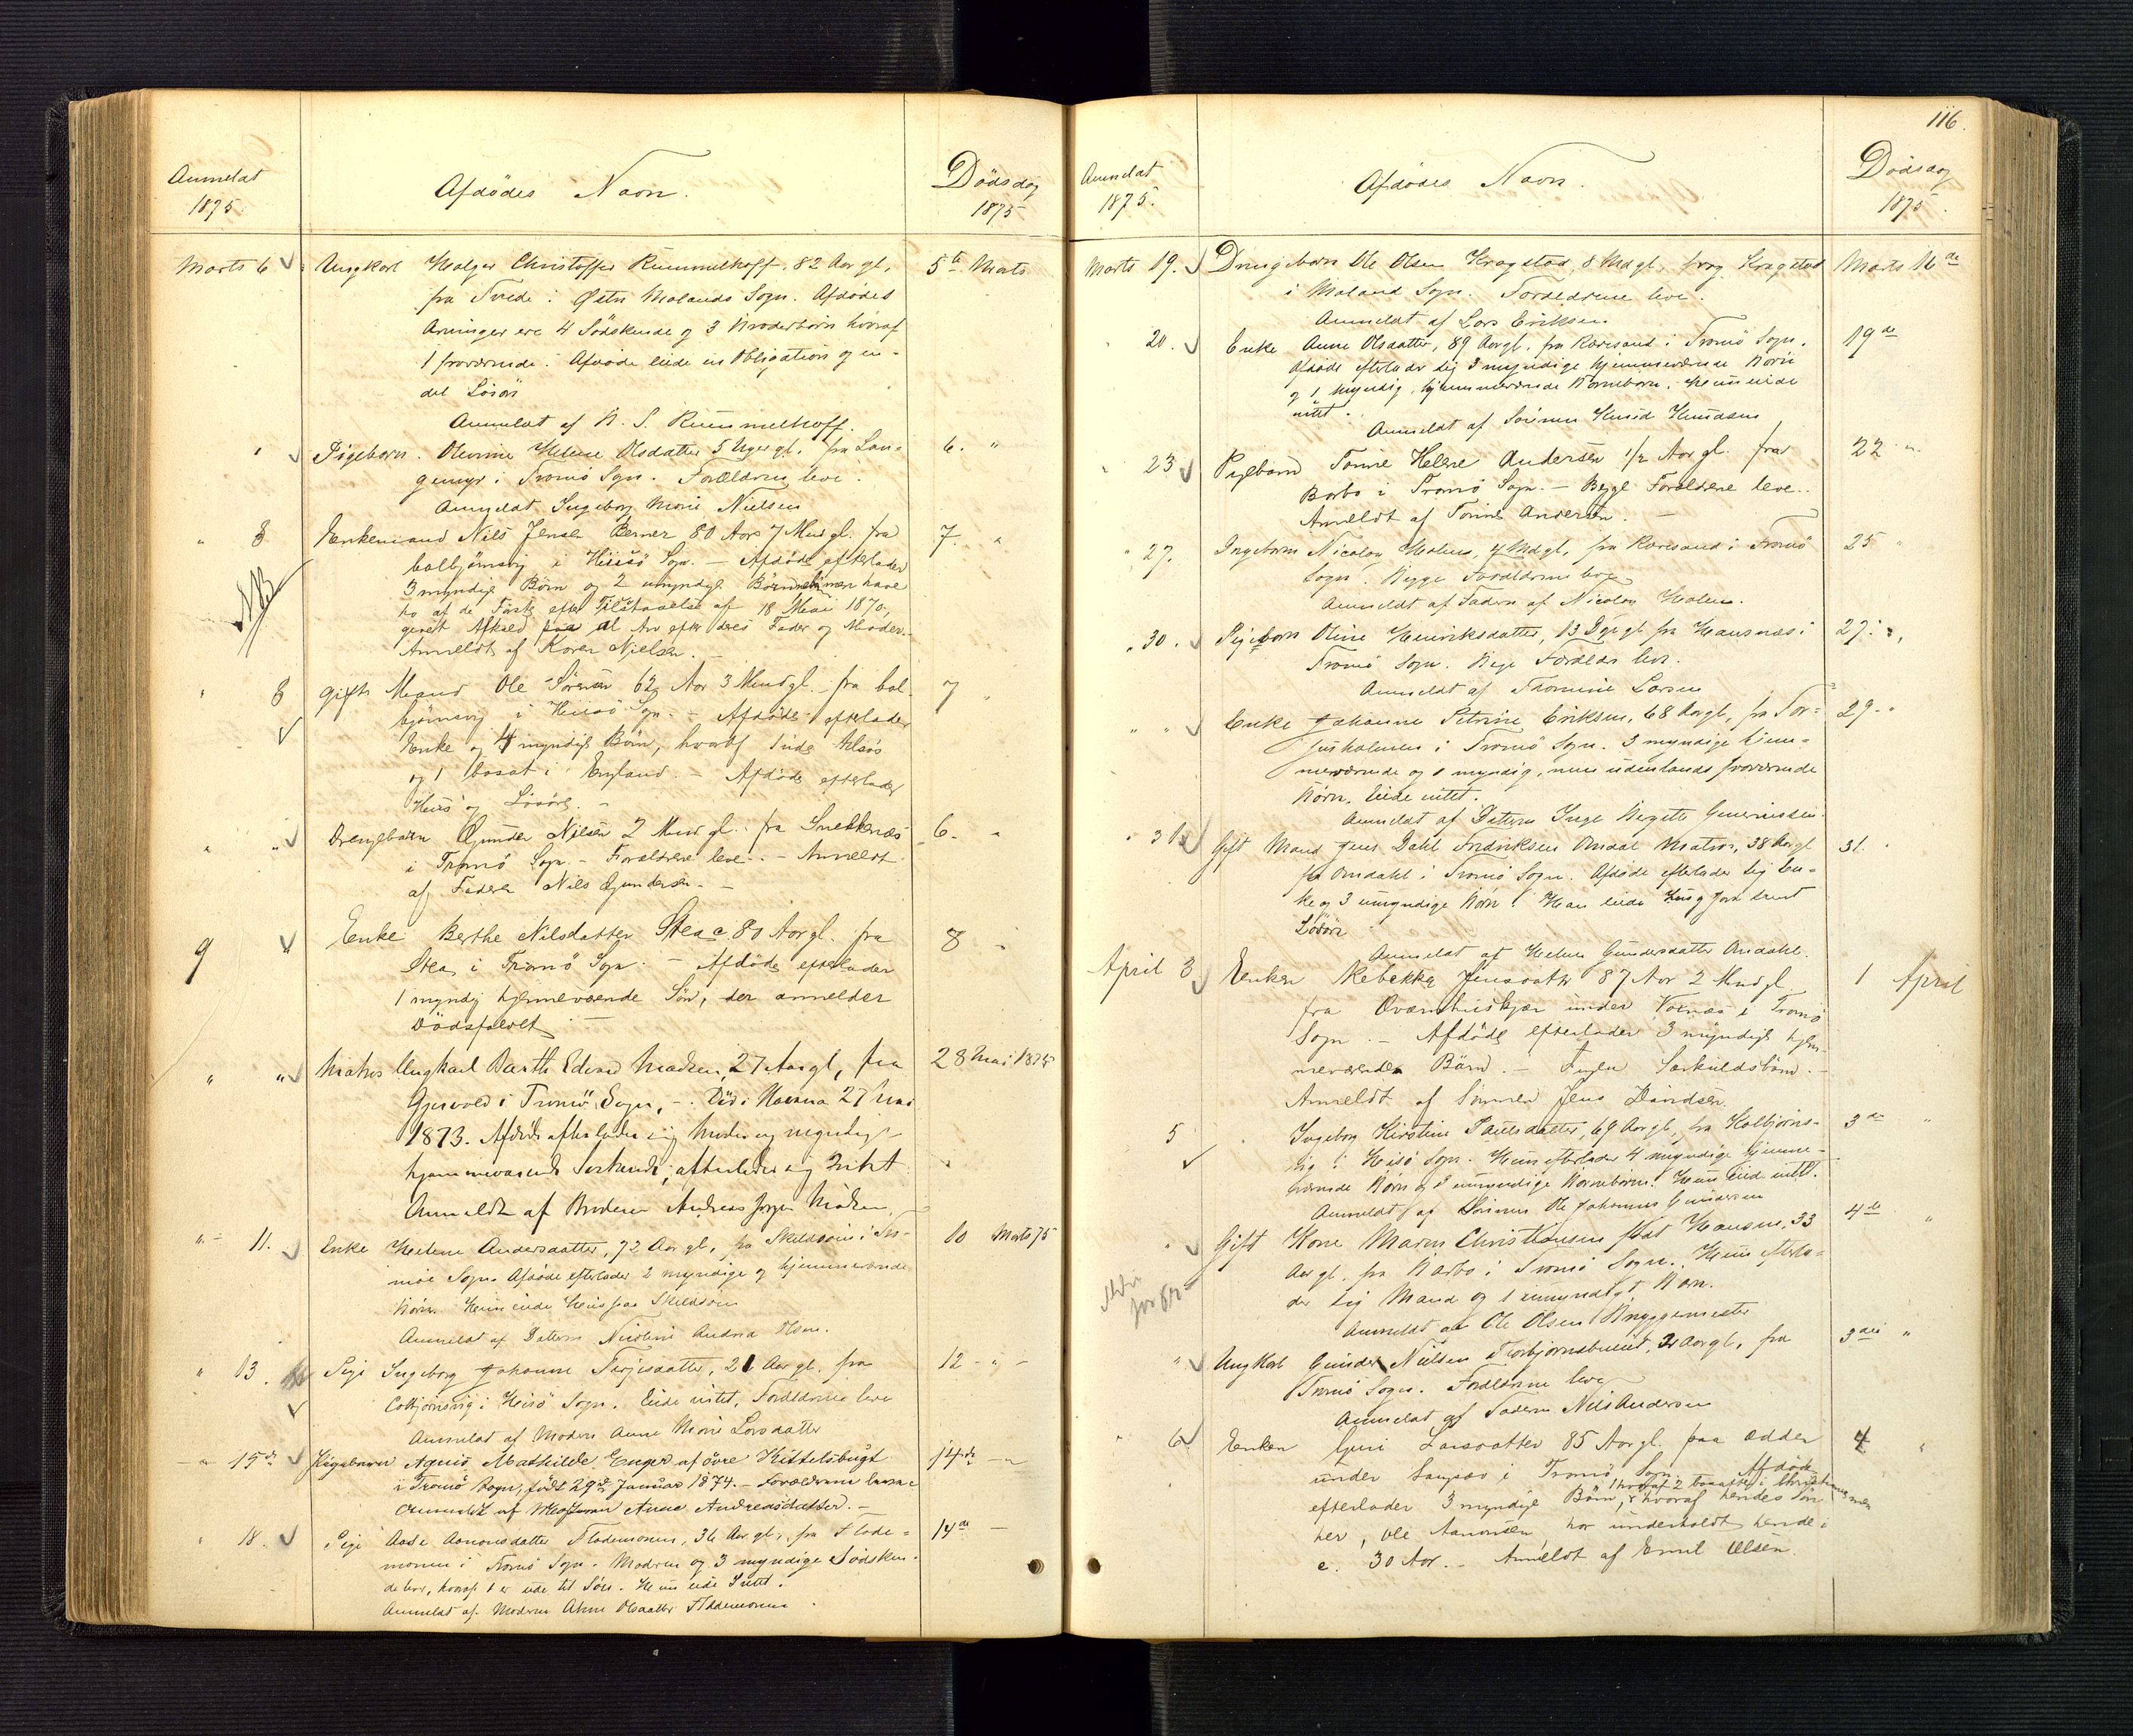 Anmeldt
1875
Afdødes Navn.
Dødsdag
1875
Marts 6
Ungkarl Holger Christoffer Rummelhoff, 82 Aar gl,
fra Tvede i Østre Molands Sogn. Afdødes
Arvinger ere 4 Södskende og 3 Broderbörn hvoraf
1 fraværende. Afdøde eiede en Obligation og en-
del Lösöre
Anmeldt af N. S. Rummelhoff.
5te Marts
" Pigebarn Olevine Helene Olsdatter 5 Uger gl. fra Lan-
gemyr i Tromö Sogn. Forældrene leve.
Anmeldt Ingeborg Marie Nielsen
6. "
" 8
NB
Enkemand Nils Jensen Berner 80 Aar 7 Mnd gl. fra
Colbjörnsvig i Hiisö Sogn. – Afdøde efterlader
3 myndige Börn og 2 umyndige Börnebörn have
to af de Förste efter Tilstaaelse af 18 Mai 1870,
givet Afkald paa al Arv efter deres Fader og Moder.
Anmeldt af Karen Nielsen. –
7. "
" 8
Gift Mand Ole Sörensen 62 Aar 3 Mnd gl. fra Col-
björnsvig i Hiisö Sogn. – Afdøde efterlader
Enke og 4 myndige Börn, hvoraf 1 ude tilsös
og 1 bosat i England. – Afdøde efterlader
Huus og Lösöre. –
7 "
" "
Drengebarn Gunder Nilsen 2 Mnd gl. fra Snekkenæs
i Tromö Sogn. – Forældrene leve. – Anmeldt
af Faderen Nils Gundersen. –
6. "
9
Enke Berthe Nilsdatter Stea c 80 Aar gl. fra
Stea i Tromö Sogn. – Afdøde efterlader
1 myndig hjemmeværende Sön, der anmelder
Dödsfaldet –
8 "
" "
Matros Ungkarl Barth Edvard Madsen, 27 Aar gl, fra
Gjervold i Tromö Sogn, –. Död i Havana 27 Mai
1873. Afdøde efterlader sig Moder og myndige
hjemmeværende Søskende; efterlader sig Intet
Anmeldt af Broderen Andreas Jørgen Madsen.
28 Mai 1875
" 11.
Enke Helene Andersdatter, 72 Aar gl, fra Skilsöen i Tro-
möe Sogn. Afdøde efterlader 2 myndige og hjemmeværende
Börn. Hun eiede Huus paa Skilsöen
Anmeldt af Datteren Nicoline Andrea Olsen.
10 Marts 75
" 13.
Pige Ingeborg Johanne Terjesdatter, 21 Aar gl. fra
Colbjörnsvig i Heisö Sogn. Eiede intet, Forældrene leve
Anmeldt af Moderen Anne Marie Larsdatter
12 - " -
" 15de
Pigebarn Agnes Mathilde Enger af övre Kittelsbugt
i Tromö Sogn, født 29de Januar 1874. – Forældrene leve
Anmeldt af Anne Andreasdatter. –
14de – "
" 18.
Pige Aase Aanonsdatter Flademoen, 36 Aar gl, fra Flade-
moen i Tromö Sogn. Moderen og 3 myndige Södsken-
de lever, hvoraf 1 er ude til Söes. Hun eiede Intet.
Anmeldt af Moderen Anne Olsdatter Flademoen.
14de –
116.
Anmeldt
1875.
Afdødes Navn.
Dødsdag
1875.
Marts 19.
Drengebarn Ole Olsen Kragstad, 8 Md gl. fra Kragstad
i Moland Sogn. Forældrene leve.
Anmeldt af Lars Eriksen
Marts 16de
" 20.
Enke Anne Olsdatter, 89 Aar gl. fra Revesand i Tromö Sogn.
Afdøde efterlader sig 3 myndige hjemmeværende Börn
og 1 myndig, hjemmeværende Barnebarn. Hun eiede
intet.
Anmeldt af Sönnen Knud Knudsen
19de
" 23
Pigebarn Tomine Helene Andersen 1/2 Aar gl. fra
Barbo i Tromö Sogn. – Begge Forældrene leve. –
Anmeldt af Tomine Andersen. –
22 "
" 27.
Nicolay Holm, 4 Md gl, fra Revesand i Tromö
Sogn. Begge Forældrene leve
Anmeldt af Faderen Nicolay Holm.
25 "
" 30.
Pigebarn Oline Henriksdatter, 13 Dge gl fra Hausnæs i
Tromö Sogn. Begge Forældre leve.
Anmeldt af Tromine Larsen
27. "
" "
Enke Johanne Petrine Eriksen, 68 Aar gl, fra Tor-
jusholmen i Tromö Sogn. 3 myndige hjem-
meværende og 1 myndig, men udenlands fraværende
Börn. Eiede intet.
Anmeldt af Datteren Inge Birgitte
29. "
" 31
Gift Mand Jens Dahl Fredriksen Omdal Matros, 38 Aar gl
fra Omdahl i Tromö Sogn. Afdøde efterlader sig En-
ke og 3 umyndige Börn. Han eiede Huus og Jord samt
Lösöre
Anmeldt af Helene Gundersdatter Omdahl.
31. "
April 3
Enken Rebekka Jensdatter 87 Aar 2 Mnd gl.
fra Qvarnhuskjær under Vornæs i Tromö
Sogn. – Afdøde efterlader 3 myndige hjem-
meværende Börn. – Ingen Særkuldsbörn. –
Anmeldt af Sönnen Jens Davidsen
1 April
5
Ingeborg Kirstine Poulsdatter, 69 Aar gl, fra Kolbjörns-
vig i Heisö Sogn. Hun efterlader 4 myndige hjemme-
værende Börn og umyndige Börnebörn. Hun eiede intet.
Anmeldt af Sönnen Ole Johannes Gundersen
3de "
"
Gift Kone Maren Christiansen født Hansen, 33
Aar gl. fra Barbo i Tromö Sogn. Hun efterla-
der sig Mand og 1 umyndigt Barn.
Anmeldt af Ole Olsen Bryggemester
4de "
"
Ungkarl Gunder Nielsen Torbjörnsbuen, 21 Aar gl, fra
Tromö Sogn. Forældrene leve
Anmeldt af Faderen Nils Andersen
3die "
" 6
Enken Guri Larsdatter 85 Aar gl. paa Odden
under Songe i Tromö Sogn. Afdøde
efterlader 3 myndige Börn, hvoraf 2 bosatte i, hvoraf hendes Sön
her, Ole Aanonsen, har underholdt hende i
c. 30 Aar. – Anmeldt af Emil Olsen.
4 "